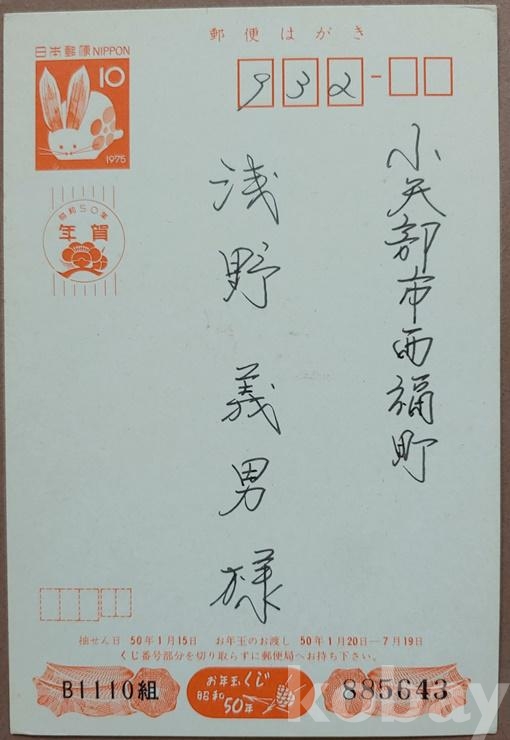 郵便はがき
日本郵便 NIPPON
10
1975
昭和50年
年賀
932-
小矢部市西福町
浅野義男様
抽せん日 50年1月15日 お年玉のお渡し 50年1月20日―7月19日
くじ番号部分を切り取らずに郵便局へお持ち下さい。
B1110組
お年玉くじ
昭和
50年
885643
kobay